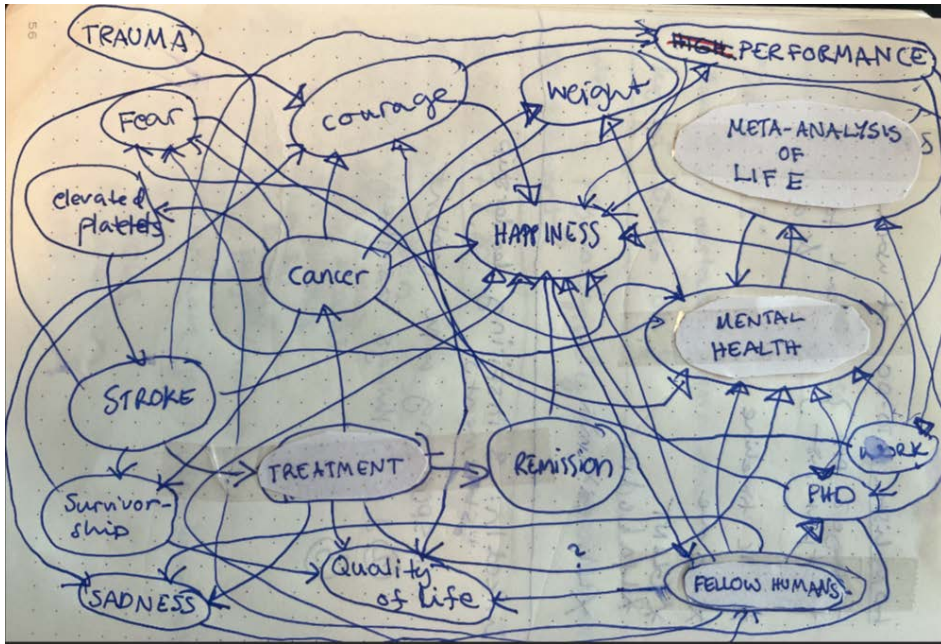 56
TRAUMA
HIGH PERFORMANCE
Fear
courage
weight
META-ANALYSIS
OF
LIFE
elevated
platlets
HAPPINESS
Cancer
MENTAL
HEALTH
STROKE
TREATMENT
REMISSION
WORK
PHD
Survivor-
ship
Quality
of life
?
FELLOW HUMANS
SADNESS